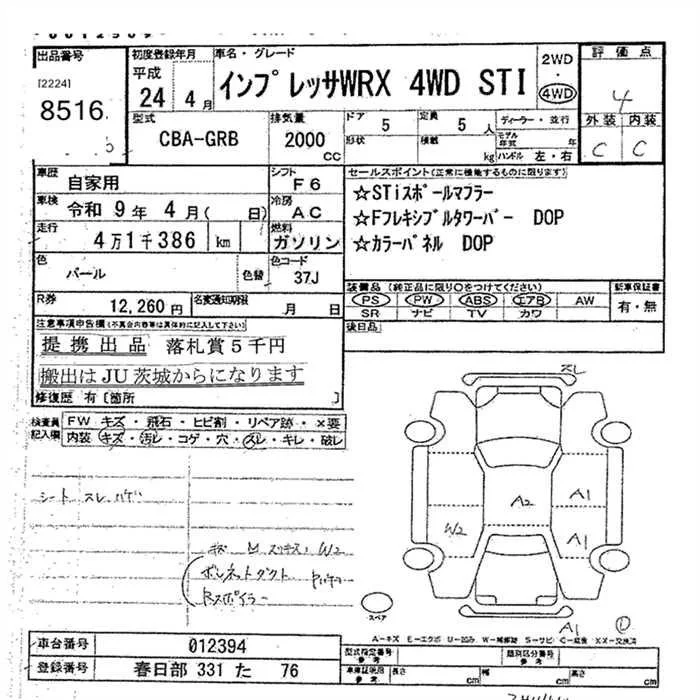 出品番号 初度登録年月 車名・グレード 2WD ・ 4WD 評価点
[2224] 8516 平成 24 4月 インプレッサWRX 4WD STI 4
外装 内装
C C
型式 CBA-GRB 排気量 2000 CC ドア 5 定員 5 人 ディーラー・並行
形状 積載 kg モデル年式 年
ハンドル 左・右
車歴 自家用 シフト F6 セールスポイント(正常に機能するものに限ります)
車検 令和 9年 4月( 日) 冷房 AC ☆STiスポールマフラー
走行 4万1千386 km 燃料 ガソリン ☆Fフレキシブルタワーバー DOP
☆カラーパネル DOP
色 パール 色替 色コード 37J
装備品(純正品に限り○をつけてください) 新車保証書
R券 12,260円 名変通知期限 月 日 PS PW ABS エアB AW 有・無
SR ナビ TV カワ
注意事項申告欄(不具合内容等は具体的に記入して下さい) 後日品
提携出品 落札賞5千円
搬出はJU茨城からになります
修復歴 有〔箇所 〕
検査員記入欄 FW キズ・飛石・ヒビ割・リペア跡・×要
内装 キズ・汚レ・コゲ・穴・スレ・キレ・破レ
シート スレ
A2 A1
W2 A1
キズ W2
ボンネットダクト
Rスポイラー
スペア
A1
A-キズ E-エクボ U-凹み W-補修跡 S-サビ C-腐食 XX-交換済
車台番号 012394 型式指定番号 参考 類別区分番号 参考
登録番号 春日部 331 た 76 車庫証明用 参考 長さ cm 幅 cm 高さ cm